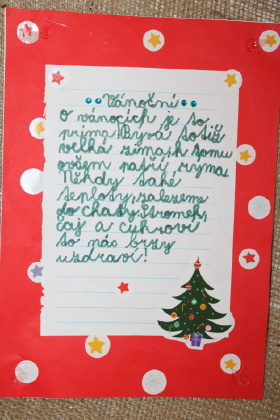 Vánoční
O vánocích je to
príma. Bývá totiž
velká zima, k tomu
ovšem patří rýma.
Někdy také
teploty, zalezeme
do chaty. Stromek,
čaj a cukroví
to nás brzy
uzdraví!